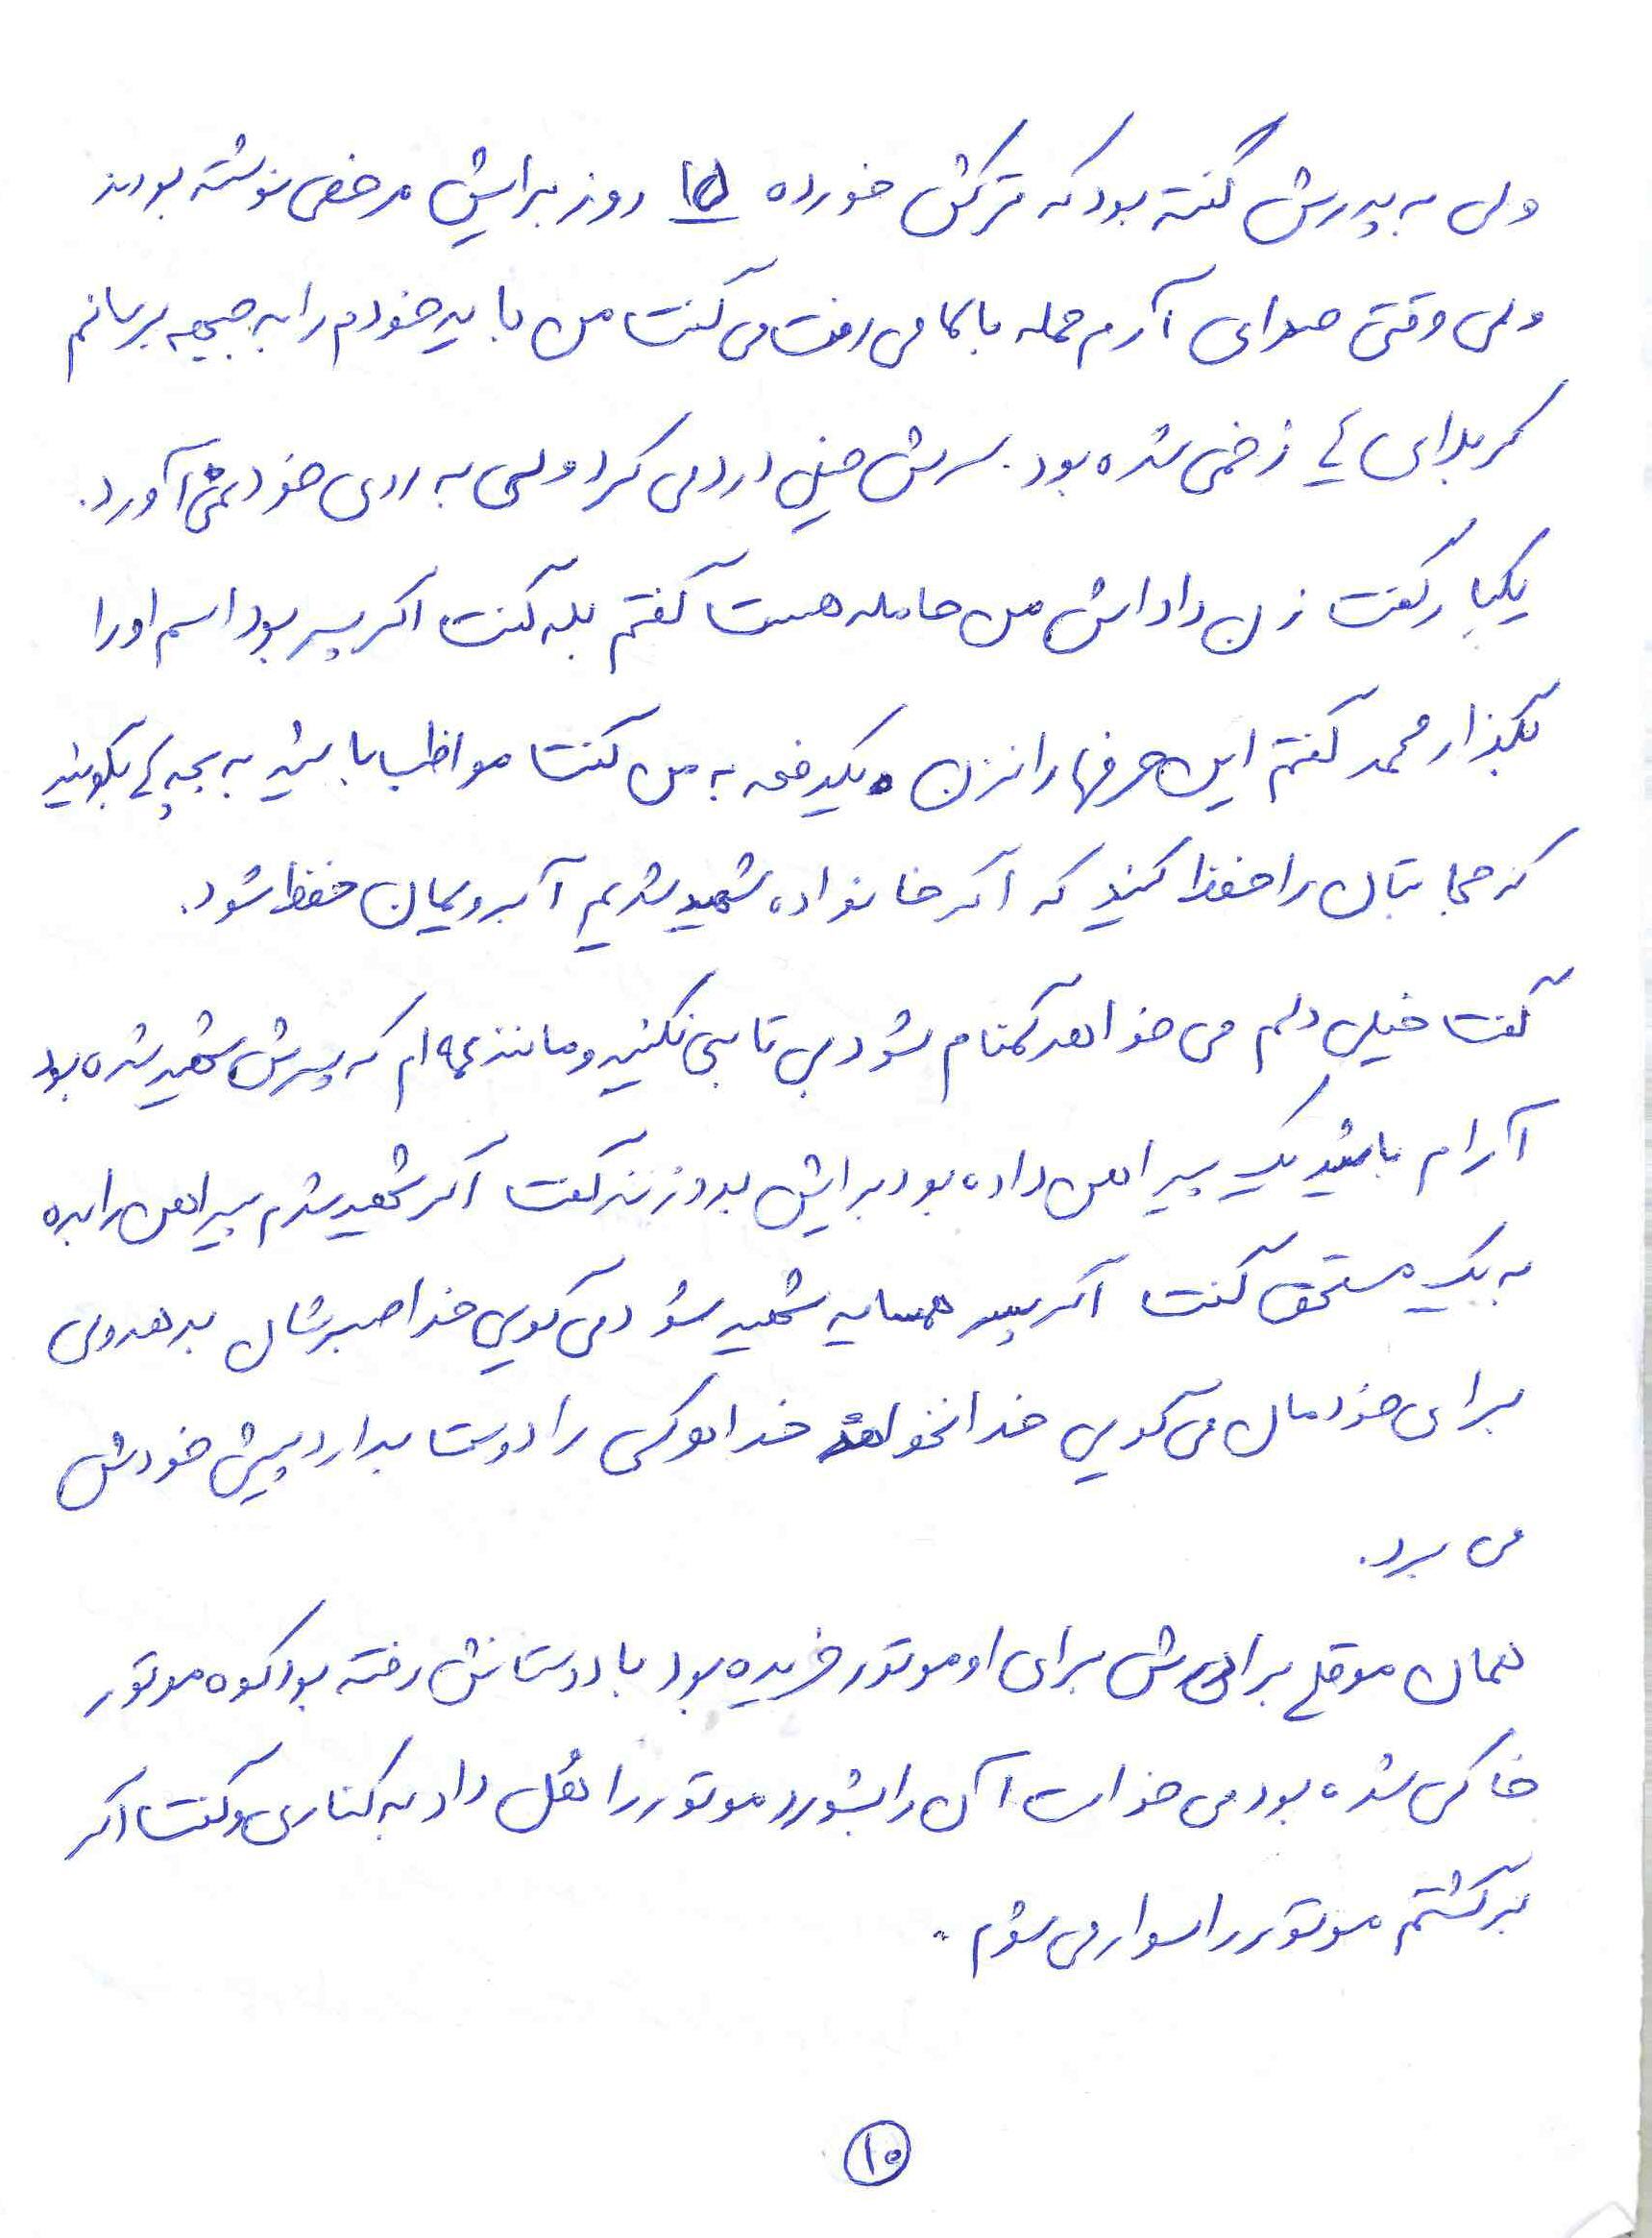 ولی به پدرش گفته بود که ترکش خورده ۱۵ روز برایش مرخصی نوشته بودند
ولی وقتی صدای آرم حمله بالا می رفت می گفت من باید خودم را به جبهه برسانم
کربلای ۴ زخمی شده بود. سرش خیلی درد می کرد ولی به روی خود نمی آورد.
یکبار گفت زن داداش من حامله هست گفتم بله گفت اگر پسر بود اسم او را
بگذار محمد گفتم این حرفها را نزن یکدفعه به من گفت مواظب باشید به بچه ها بگویید
که حجابتان را حفظ کنید که اگر خانواده شهید شدیم آبرویمان حفظ شود.
گفت خیلی دلم می خواهد گمنام شوم بی تابی نکنید و مانند عمه ام که پسرش شهید شده بود
آرام باشید یک پیراهن داده بود برایش بدوزند گفت اگر شهید شدم پیراهن را بده
به یک مستحق گفت اگر پسر همسایه شهید شود می گویی خدا صبرشان بدهد ولی
برای خودمان می گویی خدا نخواهد خدا هر کس را دوست بدارد پیش خودش
می برد.
همان موقع برادرش برای او موتور خریده بود با دوستانش رفته بود کوه موتور
خاکی شده بود می خواست آن را بشورد موتور را هل داد به کناری و گفت اگر
برگشتم موتور را سوار می شوم.
۱۰